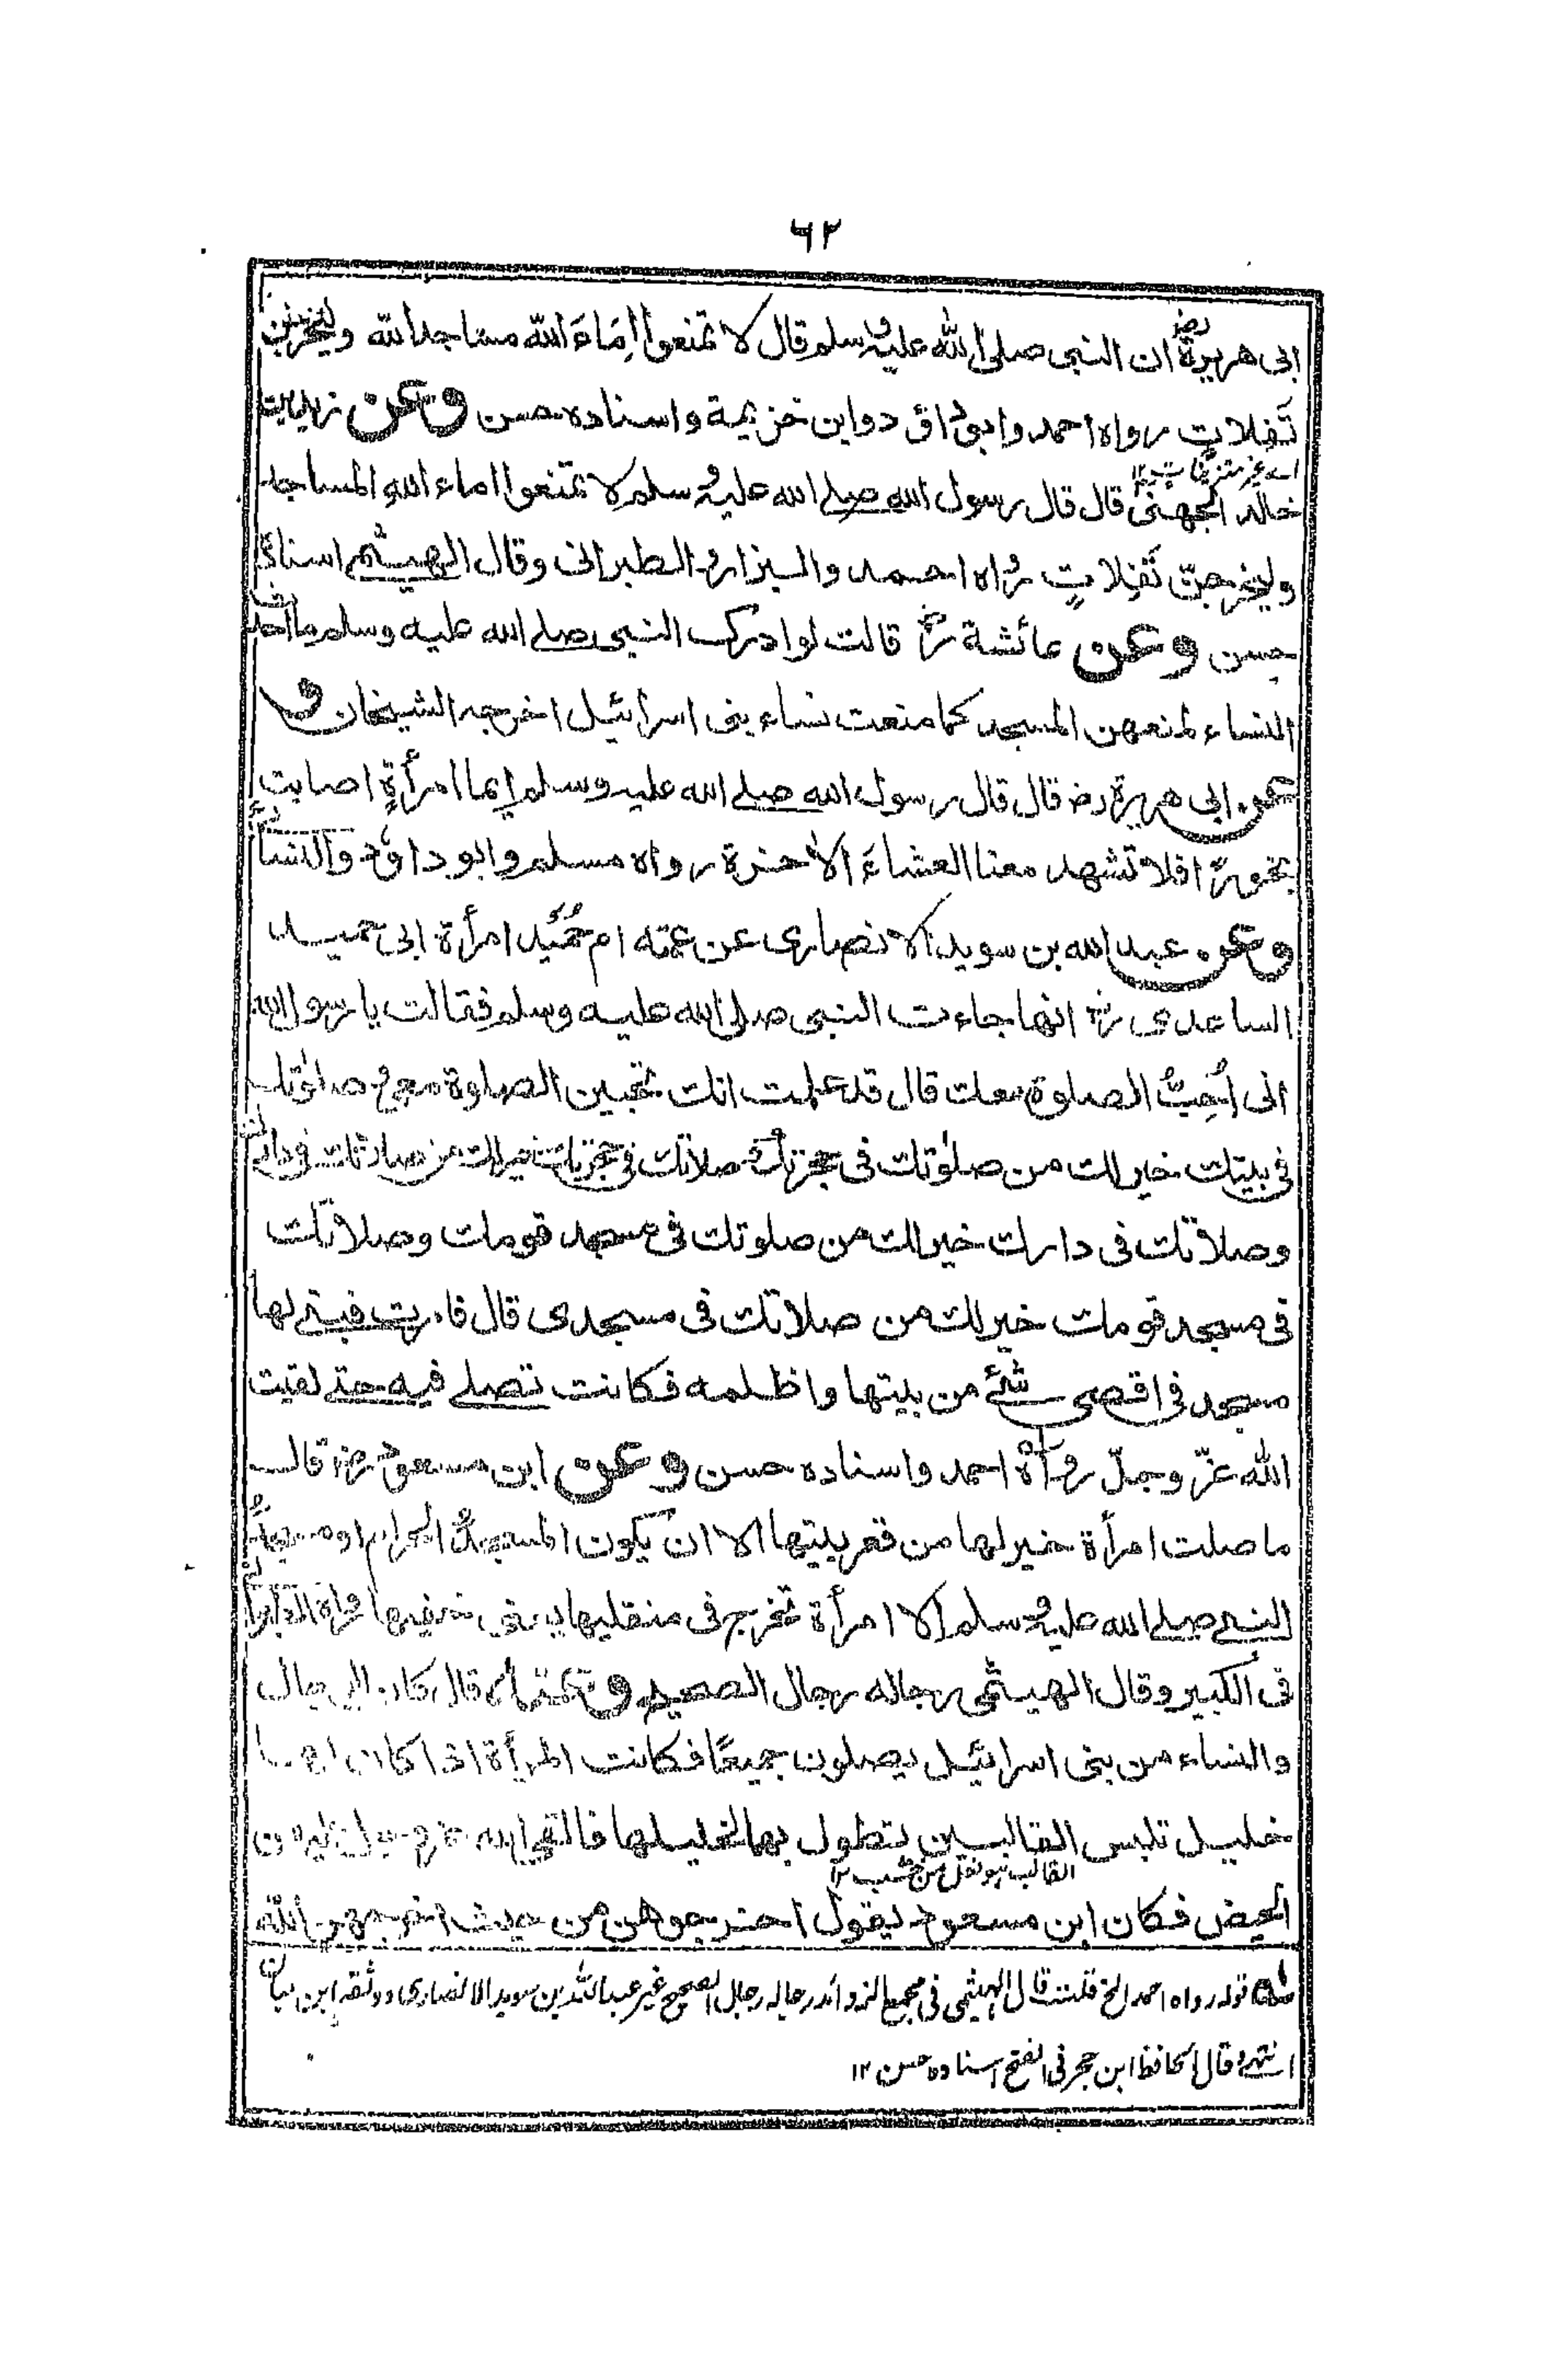 ٦٢
ابى هريرة رض ان النبى صلى الله عليه وسلم قال لا تمنعوا اِمَاءَ الله مساجد الله وليخرجن
تَفِلاتٍ رواه احمد وابو داؤد وابن خزيمة واسناده حسن وعن زيد بن
اے غير متزينات ١٢
خالد الجهنى قال قال رسول الله صلے الله عليه وسلم لا تمنعوا اماء الله المساجد
وليخرجن تَفِلاتٍ رواه احمد والبزار والطبرانى وقال الهيثمى اسناده
حسن وعن عائشة رض قالت لو ادرك النبى صلے الله عليه وسلم ما احدث
النساء لمنعهن المسجد كما منعت نساء بنى اسرائيل اخرجه الشيخان و
عن ابى هريرة رض قال قال رسول الله صلے الله عليه وسلم ايما امرأةٍ اصابت
بخورًا فلا تشهد معنا العشاءَ الاٰخرة رواه مسلم وابو داؤد والنسائى
وعن عبد الله بن سويد الانصارى عن عمته ام حُمَيد امرأة ابى حميد
الساعدى رض انها جاءت النبى صلى الله عليه وسلم فقالت يا رسول الله
انى اُحِبُّ الصلوة معك قال قد علمت انك تحبين الصلوة معى وصلوٰتك
فى بيتك خير لك من صلوٰتك فى حجرتك وصلاتك فى حجرتك خير لك من صلاتك فى دارك
وصلاتك فى دارك خير لك من صلوتك فى مسجد قومك وصلاتك
فى مسجد قومك خير لك من صلاتك فى مسجدى قال فامرت فبنى لها
مسجد فى اقصى شئے من بيتها واظلمه فكانت تصلے فيه حتے لقيت
الله عزّ وجلّ رواه احمد واسناده حسن وعن ابن مسعود رض قال
ما صلت امرأة خير لها من قعر بيتها الا ان يكون المسجد الحرام او مسجد
النبى صلے الله عليه وسلم الا امرأة تخرج فى منقليها يعنى خفيها رواه الطبرانى
فى الكبير وقال الهيثمى رجاله رجال الصحيح وعنه قال كان الرجال
والنساء من بنى اسرائيل يصلون جميعًا فكانت المرأة اذا كان لها
خليل تلبس القالبين تطول بهما لخليلها فالقى الله عليهن
القالب نعل من خشب ١٢
الحيض فكان ابن مسعود يقول اخرجوهن من حيث اخرجهن الله
قوله رواه احمد الخ قلت قال الهيثمى فى مجمع الزوائد رجاله رجال الصحيح غير عبد الله بن سويد الانصارى ووثقه ابن حبان
انتهى وقال الحافظ ابن حجر فى الفتح اسناده حسن ١٢